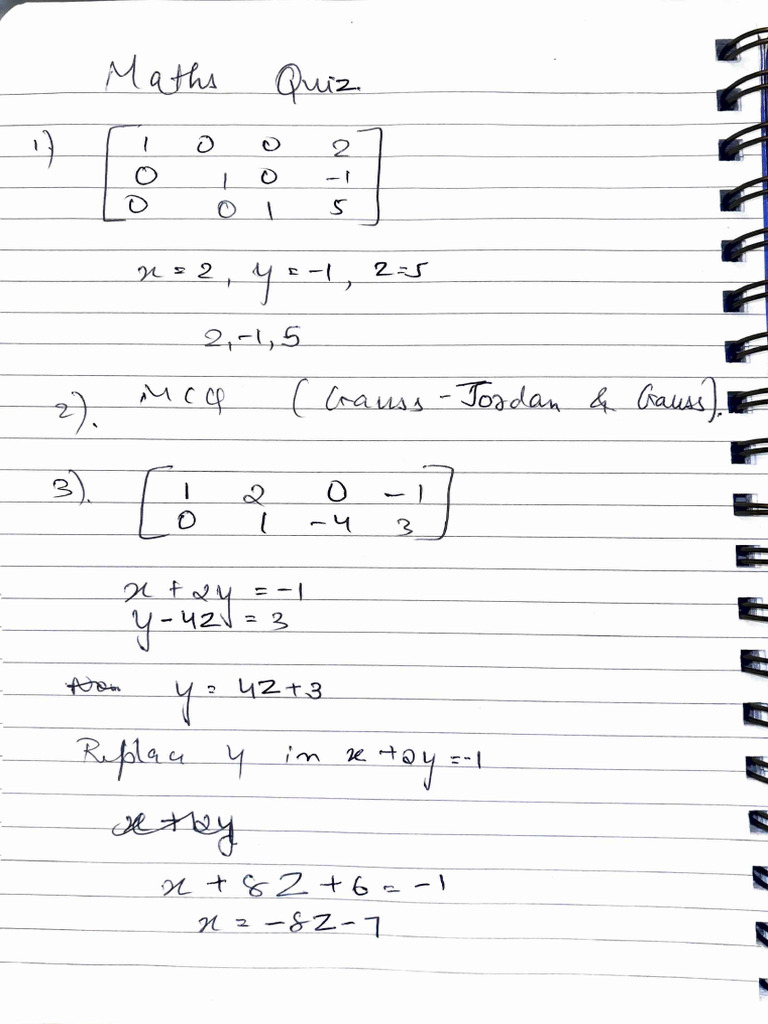 Maths Quiz.
1) [ 1 0 0 2
0 1 0 -1
0 0 1 5 ]
x = 2, y = -1, z=5
2,-1,5
2). MCQ (Gauss-Jordan & Gauss).
3). [ 1 2 0 -1
0 1 -4 3 ]
x + 2y = -1
y - 4z = 3
y = 4z+3
Replace y in x +2y =-1
x+2y
x + 8z + 6 = -1
x = -8z - 7